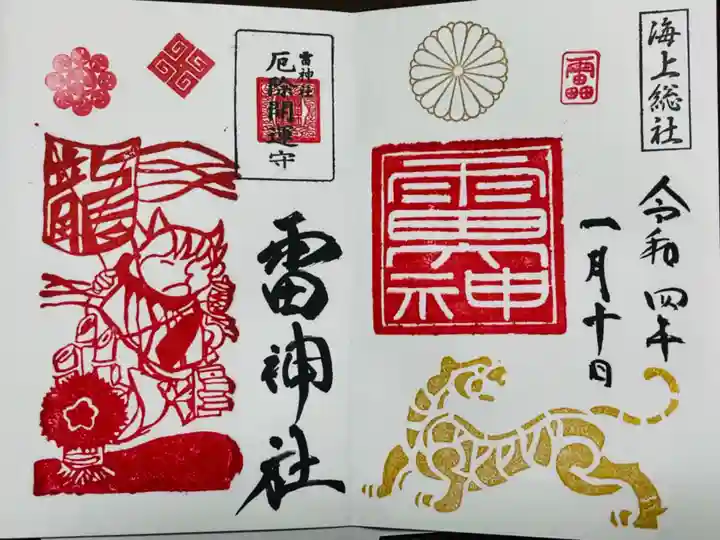 海上総社
令和四年
一月十日
雷神社
雷神社
厄除開運守
龍